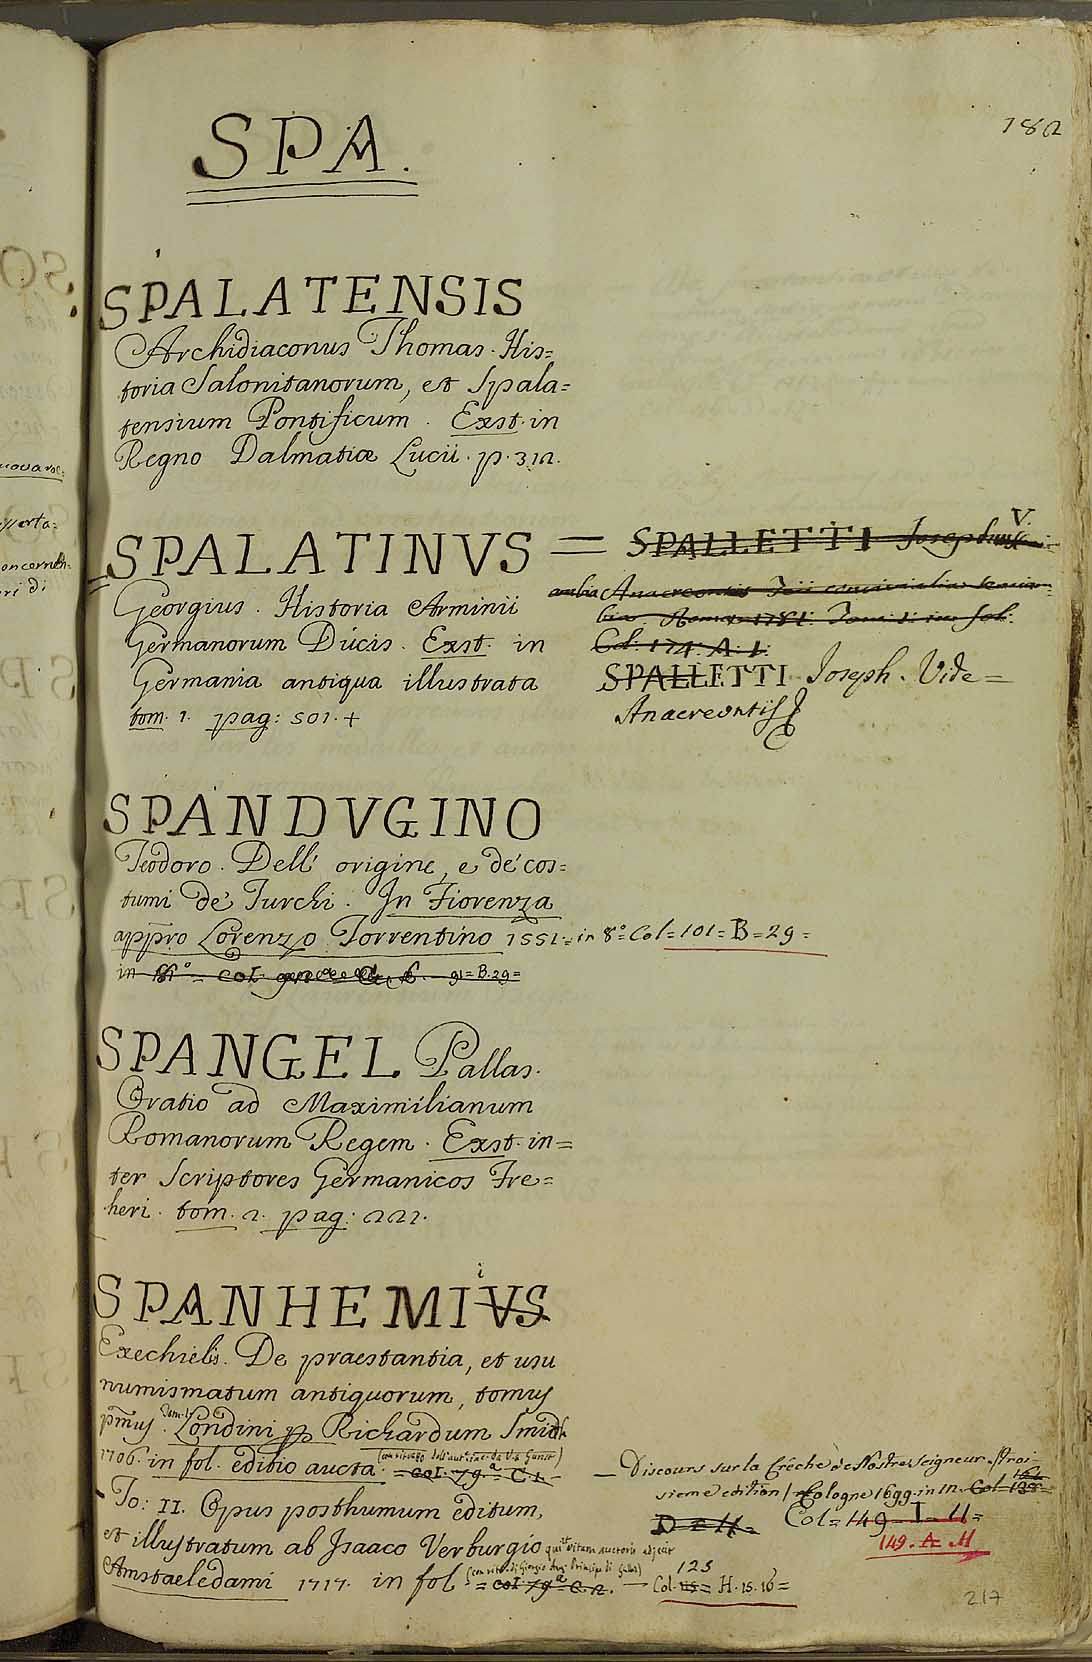 182
SPA.
SPALATENSIS
Archidiaconus Thomas. His=
toria Salonitanorum, et Spala=
tensium Pontificum. Exst. in
Regno Dalmatiæ Lucii. p. 312.
SPALATINVS =
Georgius. Historia Arminii
Germanorum Ducis. Exst. in
Germania antiqua illustrata
tom. 1. pag: 501. +
V.
SPALLETTI Joseph
Anacreontis Teii convivialia semiam=
bia Romæ 1781. Tom. 1. in fol.
Col. 174. A. 1.
SPALLETTI Joseph. Vide=
Anacreontis
SPANDVGINO
Teodoro. Dell' origine, e de' cos=
tumi de' Turchi. In Fiorenza
appro Lorenzo Torrentino 1551.= in 8°= Col= 101= B= 29=
in 91= B. 29=
SPANGEL Pallas.
Oratio ad Maximilianum
Romanorum Regem. Exst. in=
ter Scriptores Germanicos Fre=
heri. tom. 2. pag: 221.
SPANHEMIVS i
Ezechielis. De praestantia, et usu
numismatum antiquorum, tomus
pmus. Tom. 1. Londini pp Richardum Smidt
1706. in fol. editio aucta. =col. 79.a C 1.
- To: II. Opus posthumum editum,
et illustratum ab Isaaco Verburgio qui et vitam auctoris adjecit
Amstaeledami 1717. in fol =col. 79.a C. 2. — 123
Col. 115= H. 15. 16=
— Discours sur la Crêche de Nostre Seigneur. Troi
sieme edition / Cologne 1699. in 12. Col
D= 11=. Col= 149= I= 11=
149. A. 11
217